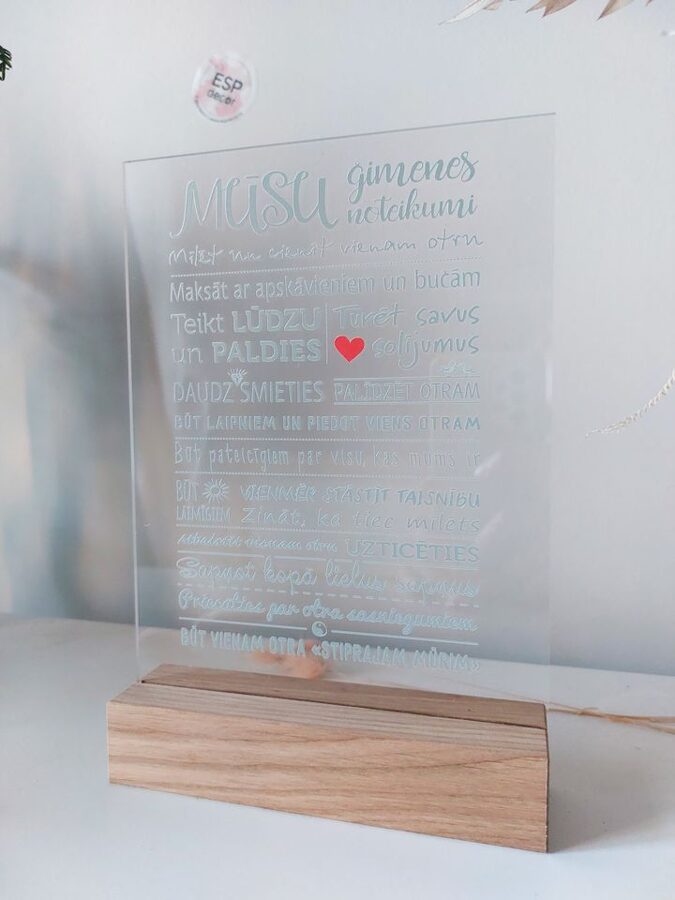 ESP
decor
MŪSU ģimenes noteikumi
Mīlēt un cienīt vienam otru
Maksāt ar apskāvieniem un bučām
Teikt LŪDZU un PALDIES
Turēt savus solījumus
DAUDZ SMIETIES
PALĪDZĒT OTRAM
BŪT LAIPNIEM UN PIEDOT VIENS OTRAM
Būt pateicīgiem par visu, kas mums ir
BŪT LAIMĪGIEM
VIENMĒR STĀSTĪT TAISNĪBU
Zināt, ka tiec mīlēts
atbalstīt vienam otru UZTICĒTIES
Sapņot kopā lielus sapņus
Priecāties par otra sasniegumiem
BŪT VIENAM OTRA «STIPRAJAM MŪRIM»